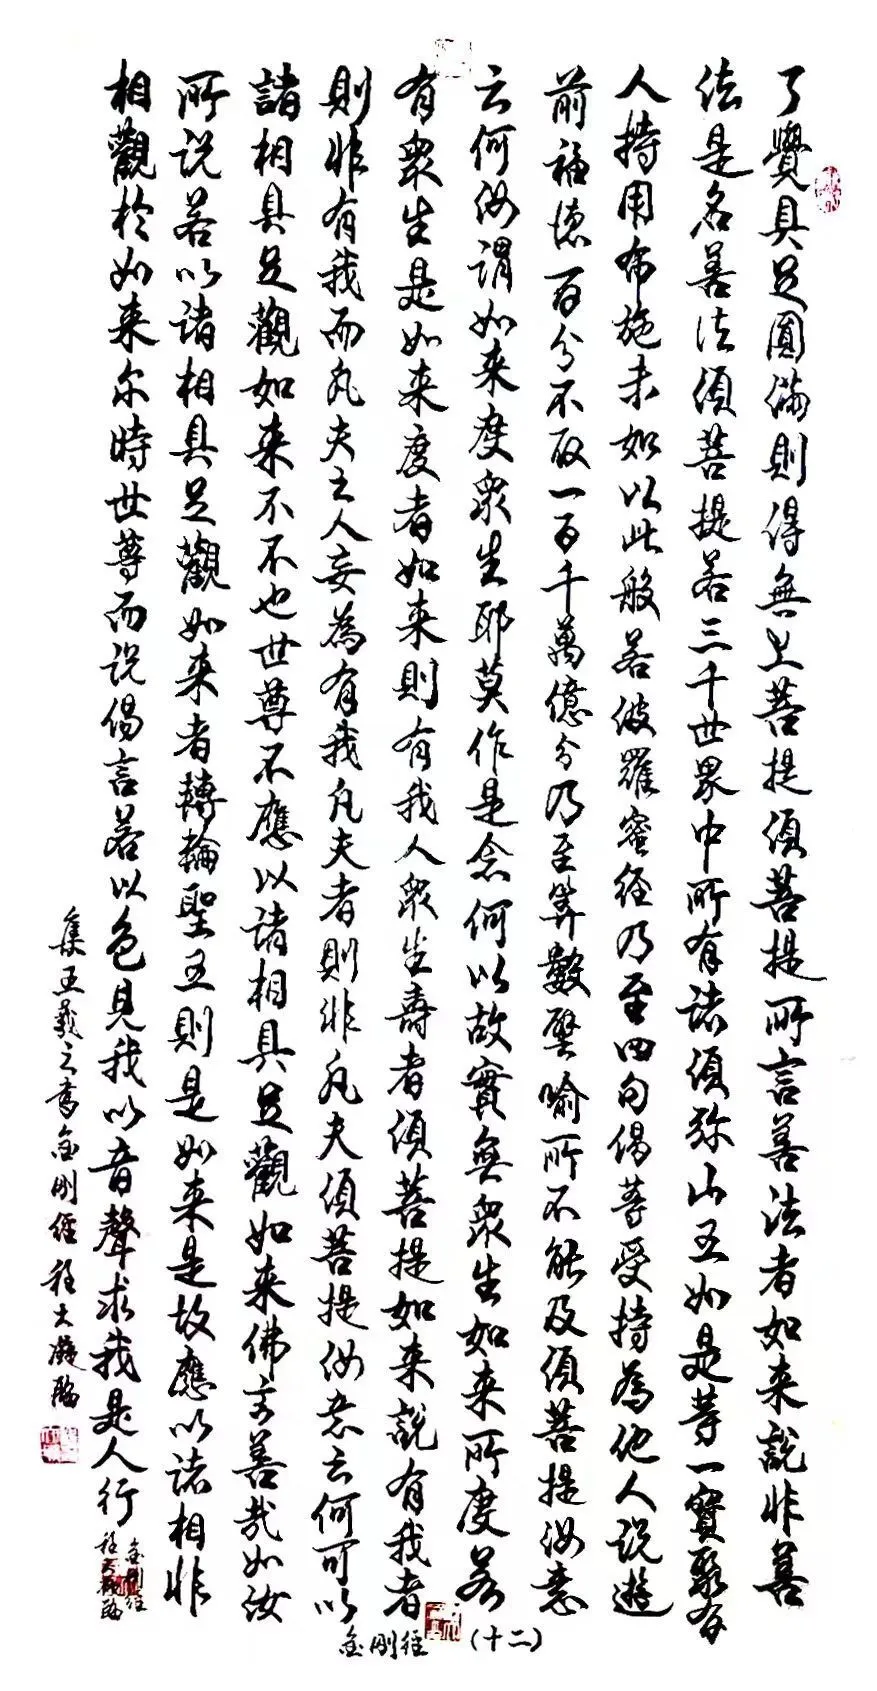 了覺具足圓滿則得無上菩提須菩提所言善法者如来說非善
法是名善法須菩提若三千世界中所有諸須弥山王如是等一寶聚有
人持用布施未如以此般若波羅蜜經乃至四句偈等受持為他人说逰
前福德百分不取一百千萬億分乃至算數譬喻所不能及須菩提汝意
云何汝謂如来度眾生耶莫作是念何以故實無眾生如来所度若
有眾生是如来度者如来則有我人眾生壽者須菩提如来說有我者
則非有我而凡夫之人妄為有我凡夫者則非凡夫須菩提汝意云何可以
諸相具足觀如来不不也世尊不應以諸相具足觀如来佛言善哉如汝
所说若以諸相具足觀如来者轉輪聖王則是如来是故應以諸相非
相觀於如来尔時世尊而说偈言若以色見我以音聲求我是人行
集王羲之書金剛經程大
金剛經
金剛經（十二）